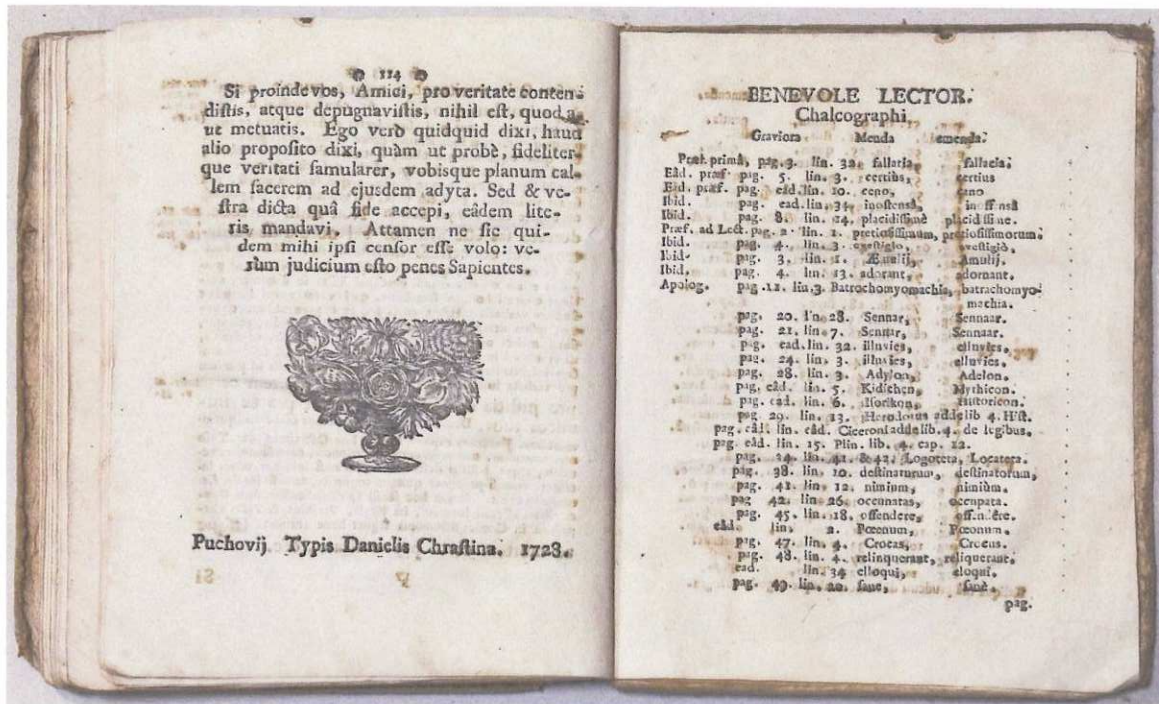 114
Si proinde vos, Amici, pro veritate conten-
distis, atque depugnavistis, nihil est, quod a-
ut metuatis. Ego verò quidquid dixi, haud
alio proposito dixi, quàm ut probè, fideliter-
que veritati famularer, vobisque planum cal-
lem facerem ad ejusdem adyta. Sed & ve-
stra dicta quâ fide accepi, eâdem lite-
ris mandavi. Attamen ne sic qui-
dem mihi ipsi censor esse volo: ve-
rùm judicium esto penes Sapientes.
Puchovij Typis Danielis Chrastina. 1728.
BENEVOLE LECTOR.
Chalcographi
Graviora Menda emenda.
Præf. primâ, pag. 3. lin. 32. fallatia, fallacia.
Eâd. præf. pag. 5. lin. 3. certiùs, certius
Eâd. præf. pag. eâd. lin. 10. ceno, cano
Ibid. pag. ead. lin. 34. inostensâ,
Ibid. pag. 8. lin. 14. placidissimè placidissime.
Præf. ad Lect. pag. 2. lin. 1. pretiosissimum, pretiosissimorum.
Ibid. pag. 4. lin. 3. evestigio, evestigiò.
Ibid. pag. 3. lin. 1. Æmilij, Amulij.
Ibid. pag. 4. lin. 13. adorant, adornant.
Apolog. pag. 12. lin. 3. Batrochomyomachia, batrachomyo-
machia.
pag. 20. lin. 28. Sennar, Sennaar.
pag. 21. lin. 7. Sennar, Sennaar.
pag. ead. lin. 32. illuvies, elluvies.
pag. 24. lin. 3. illuvies, elluvies.
pag. 28. lin. 3. Adylon, Adelon.
pag. eâd. lin. 5. Kidichen, Mythicon.
pag. ead. lin. 6. Horikon, Historicon.
pag. 29. lin. 13. Herodotus adde lib 4. Hist.
pag. eâd. lin. eâd. Ciceroni adde lib. 4. de legibus.
pag. eâd. lin. 15. Plin. lib. 4. cap. 12.
pag. 34. lin. 41. & 42. Logoteta, Locatera.
pag. 38. lin. 10. destinaturum, destinatorum,
pag. 41. lin. 12. nimium, nimiùm.
pag. 42. lin. 26. occunatas, occupata.
pag. 45. lin. 18. offendere, offendêre.
eâd. lin. 2. Pœonum.
pag. 47. lin. 4. Crocas, Crocus.
pag. 48. lin. 4. relinquerant, reliquerant.
ead. lin. 34 elloqui, eloqui.
pag. 49. lin. 20. sane, sanè.
pag.